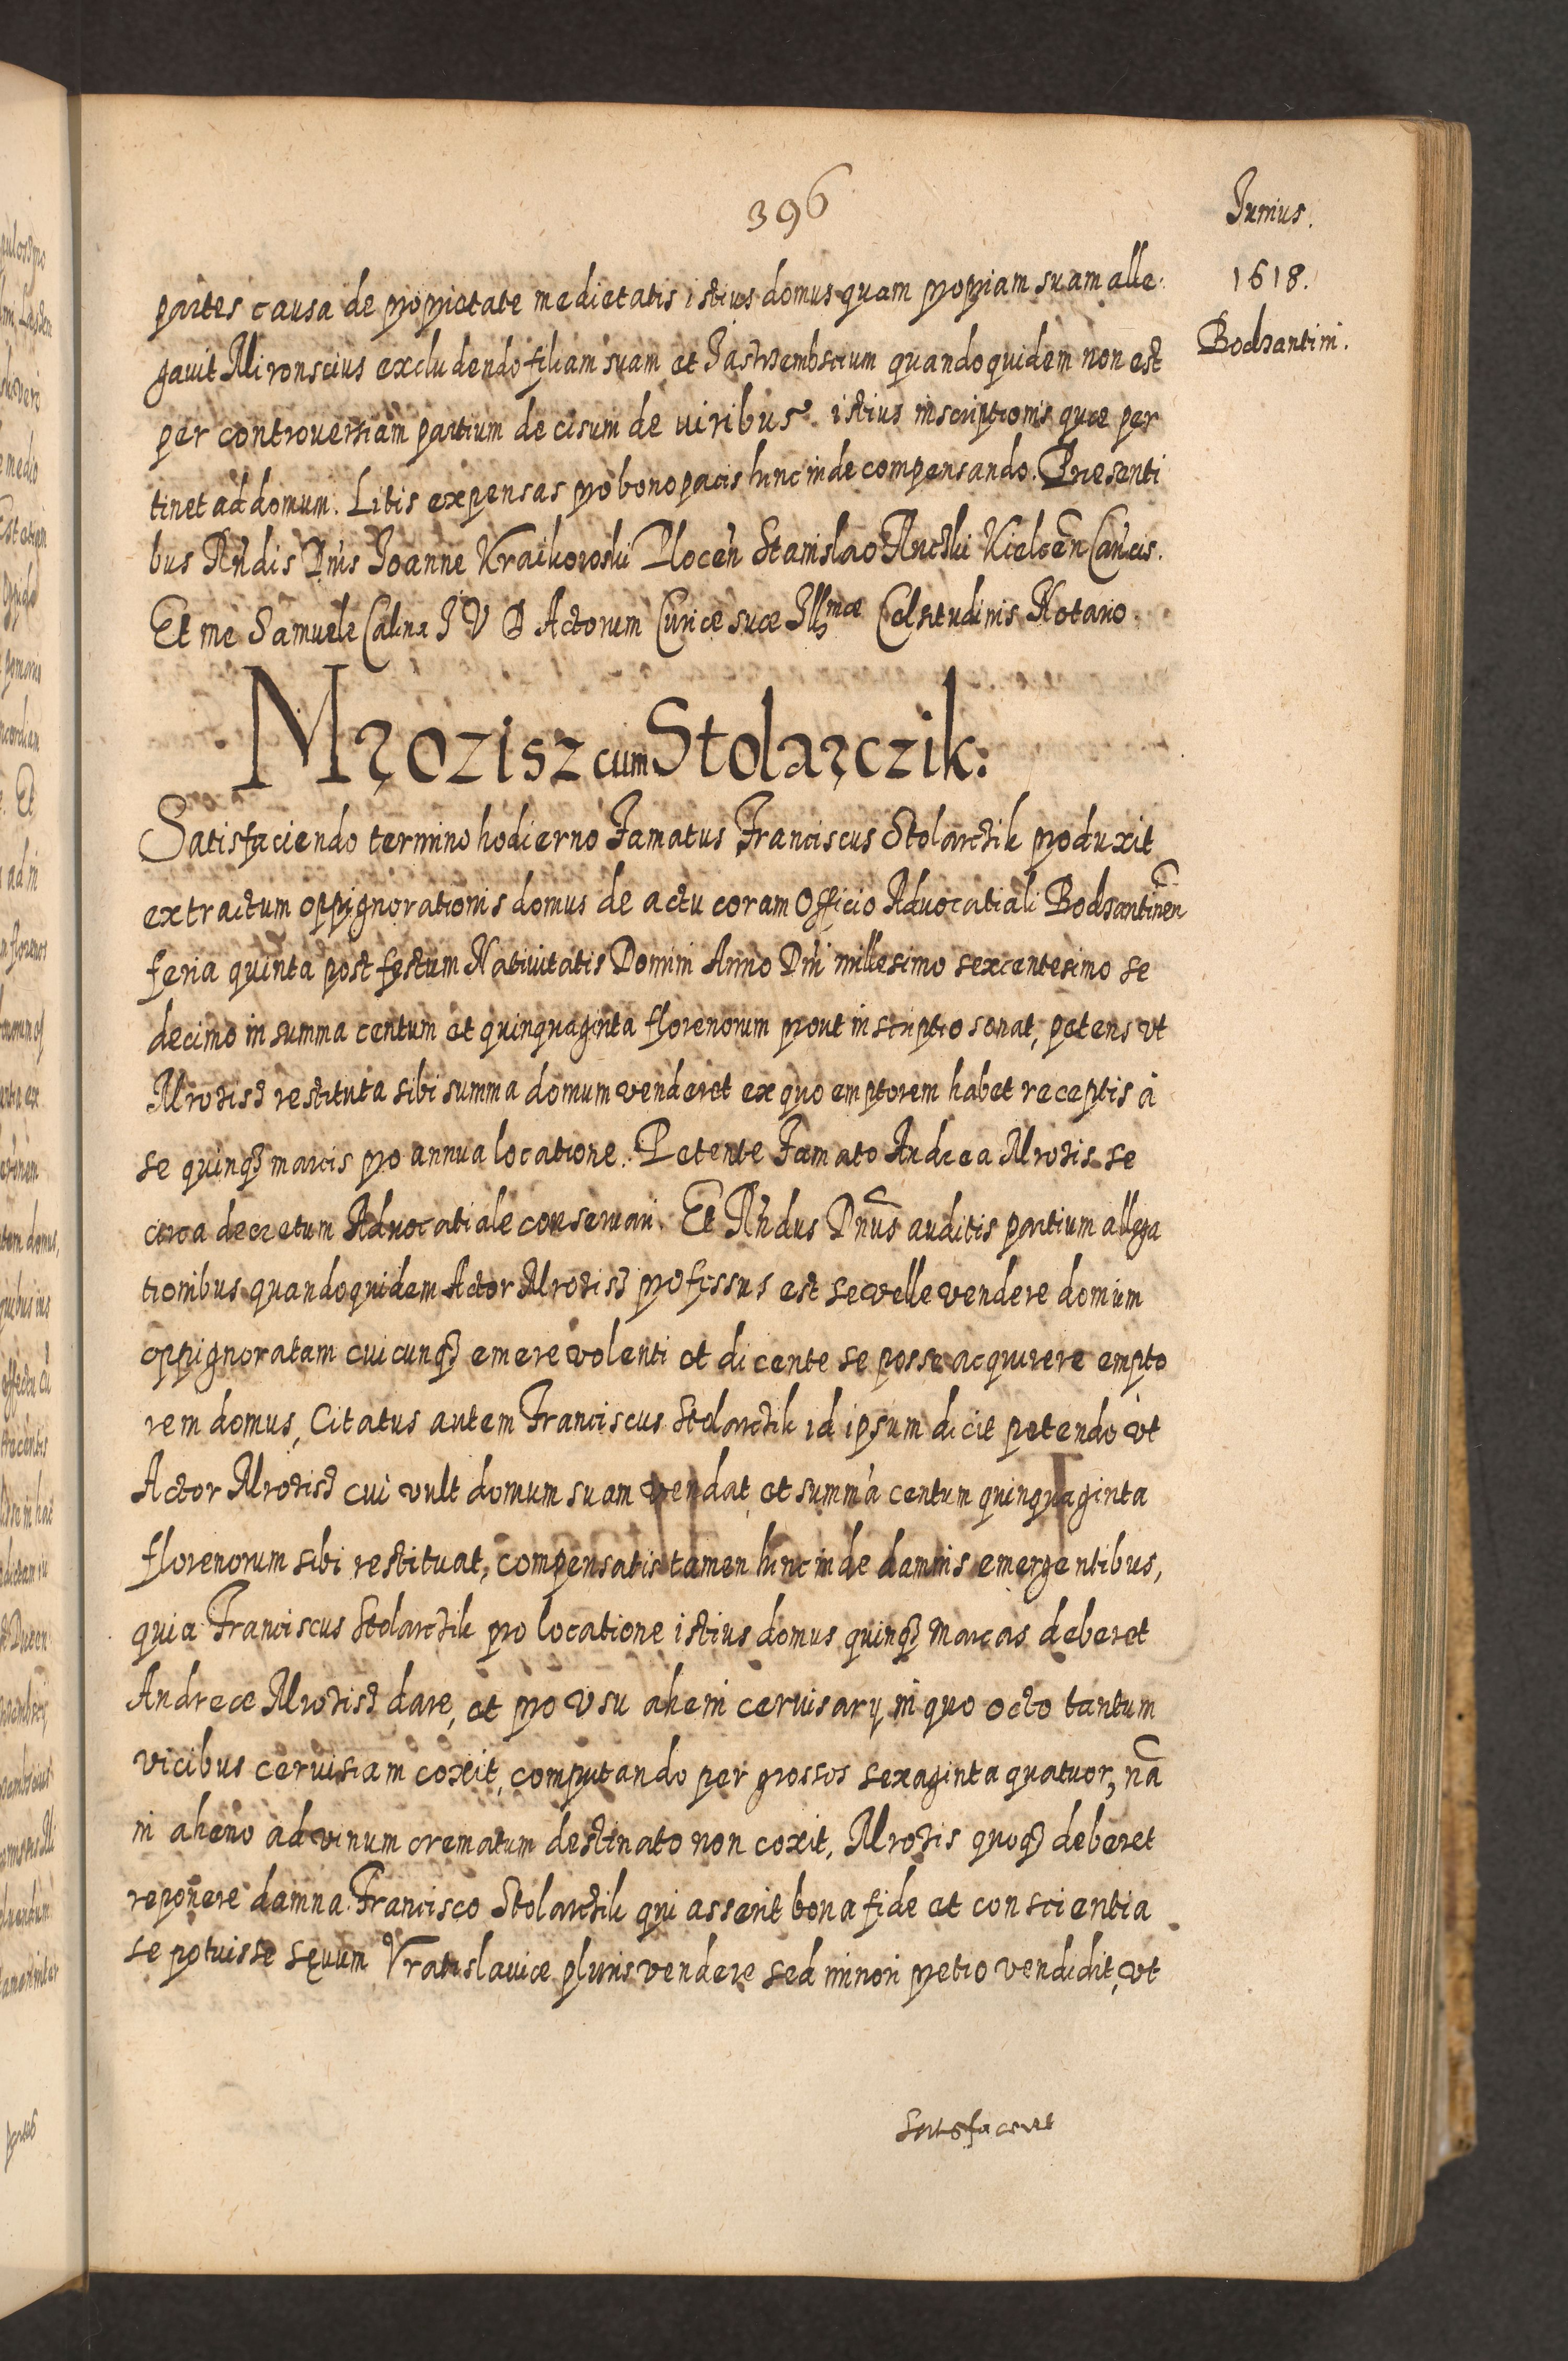 396
Junius.
1618.
Bodzantini.
partes causa de proprietate medietatis istius domus quam propriam suam alle
gavit Mironscius excludendo filiam suam et Jastrzembscium quandoquidem non est
per controversiam partium decisum de viribus istius inscriptionis quae per
tinet ad domum. Litis expensas pro bono pacis hinc inde compensando. Praesenti
bus Rndis Dnis Joanne Kraikowski Plocen Stanislao Kielcen Cancis.
Et me Samuele Calina J V D Actorum Curiae suae Illmae Celsitudinis Notario.
Mrozisz cum Stolarczik:
Satisfaciendo termino hodierno Famatus Franciscus Stolarczik produxit
extractum oppignorationis domus de actu coram Officio Advocatiali Bodzantinen
feria quinta post festum Nativitatis Domini Anno Dni millesimo sexcentesimo se
decimo in summa centum et quinquaginta florenorum prout inscriptio sonat, petens vt
Mrozisz restituta sibi summa domum venderet ex quo emptorem habet receptis à
se quinqz marcis pro annua locatione. Petente Famato Andrea Mrozis se
circa decretum Advocatiale conservari. Et Rndus Dnus auditis partium allega
tionibus quandoquidem Actor Mrozisz professus est se velle vendere domum
oppignoratam cuicunqz emere volenti et dicente se posse acquirere empto
rem domus, Citatus autem Franciscus Stolarczik id ipsum dicit petendo vt
Actor Mrozisz cui vult domum suam vendat et summa centum quinquaginta
florenorum sibi restituat, compensatis tamen hinc inde damnis emergentibus,
quia Franciscus Stolarczik pro locatione istius domus quinqz marcas deberet
Andreae Mrozisz dare, et pro vsu aheni cervisarij in quo octo tantum
vicibus cervisiam coxit, computando per grossos sexaginta quatuor, nā
in aheno ad vinum crematum destinato non coxit. Mrozis quoqz deberet
reponere damna Francisco Stolarczik qui asserit bona fide et conscientia
se potuisse sęvum Vratislaviae pluris vendere sed minori pretio vendidit, vt
satisfaceret